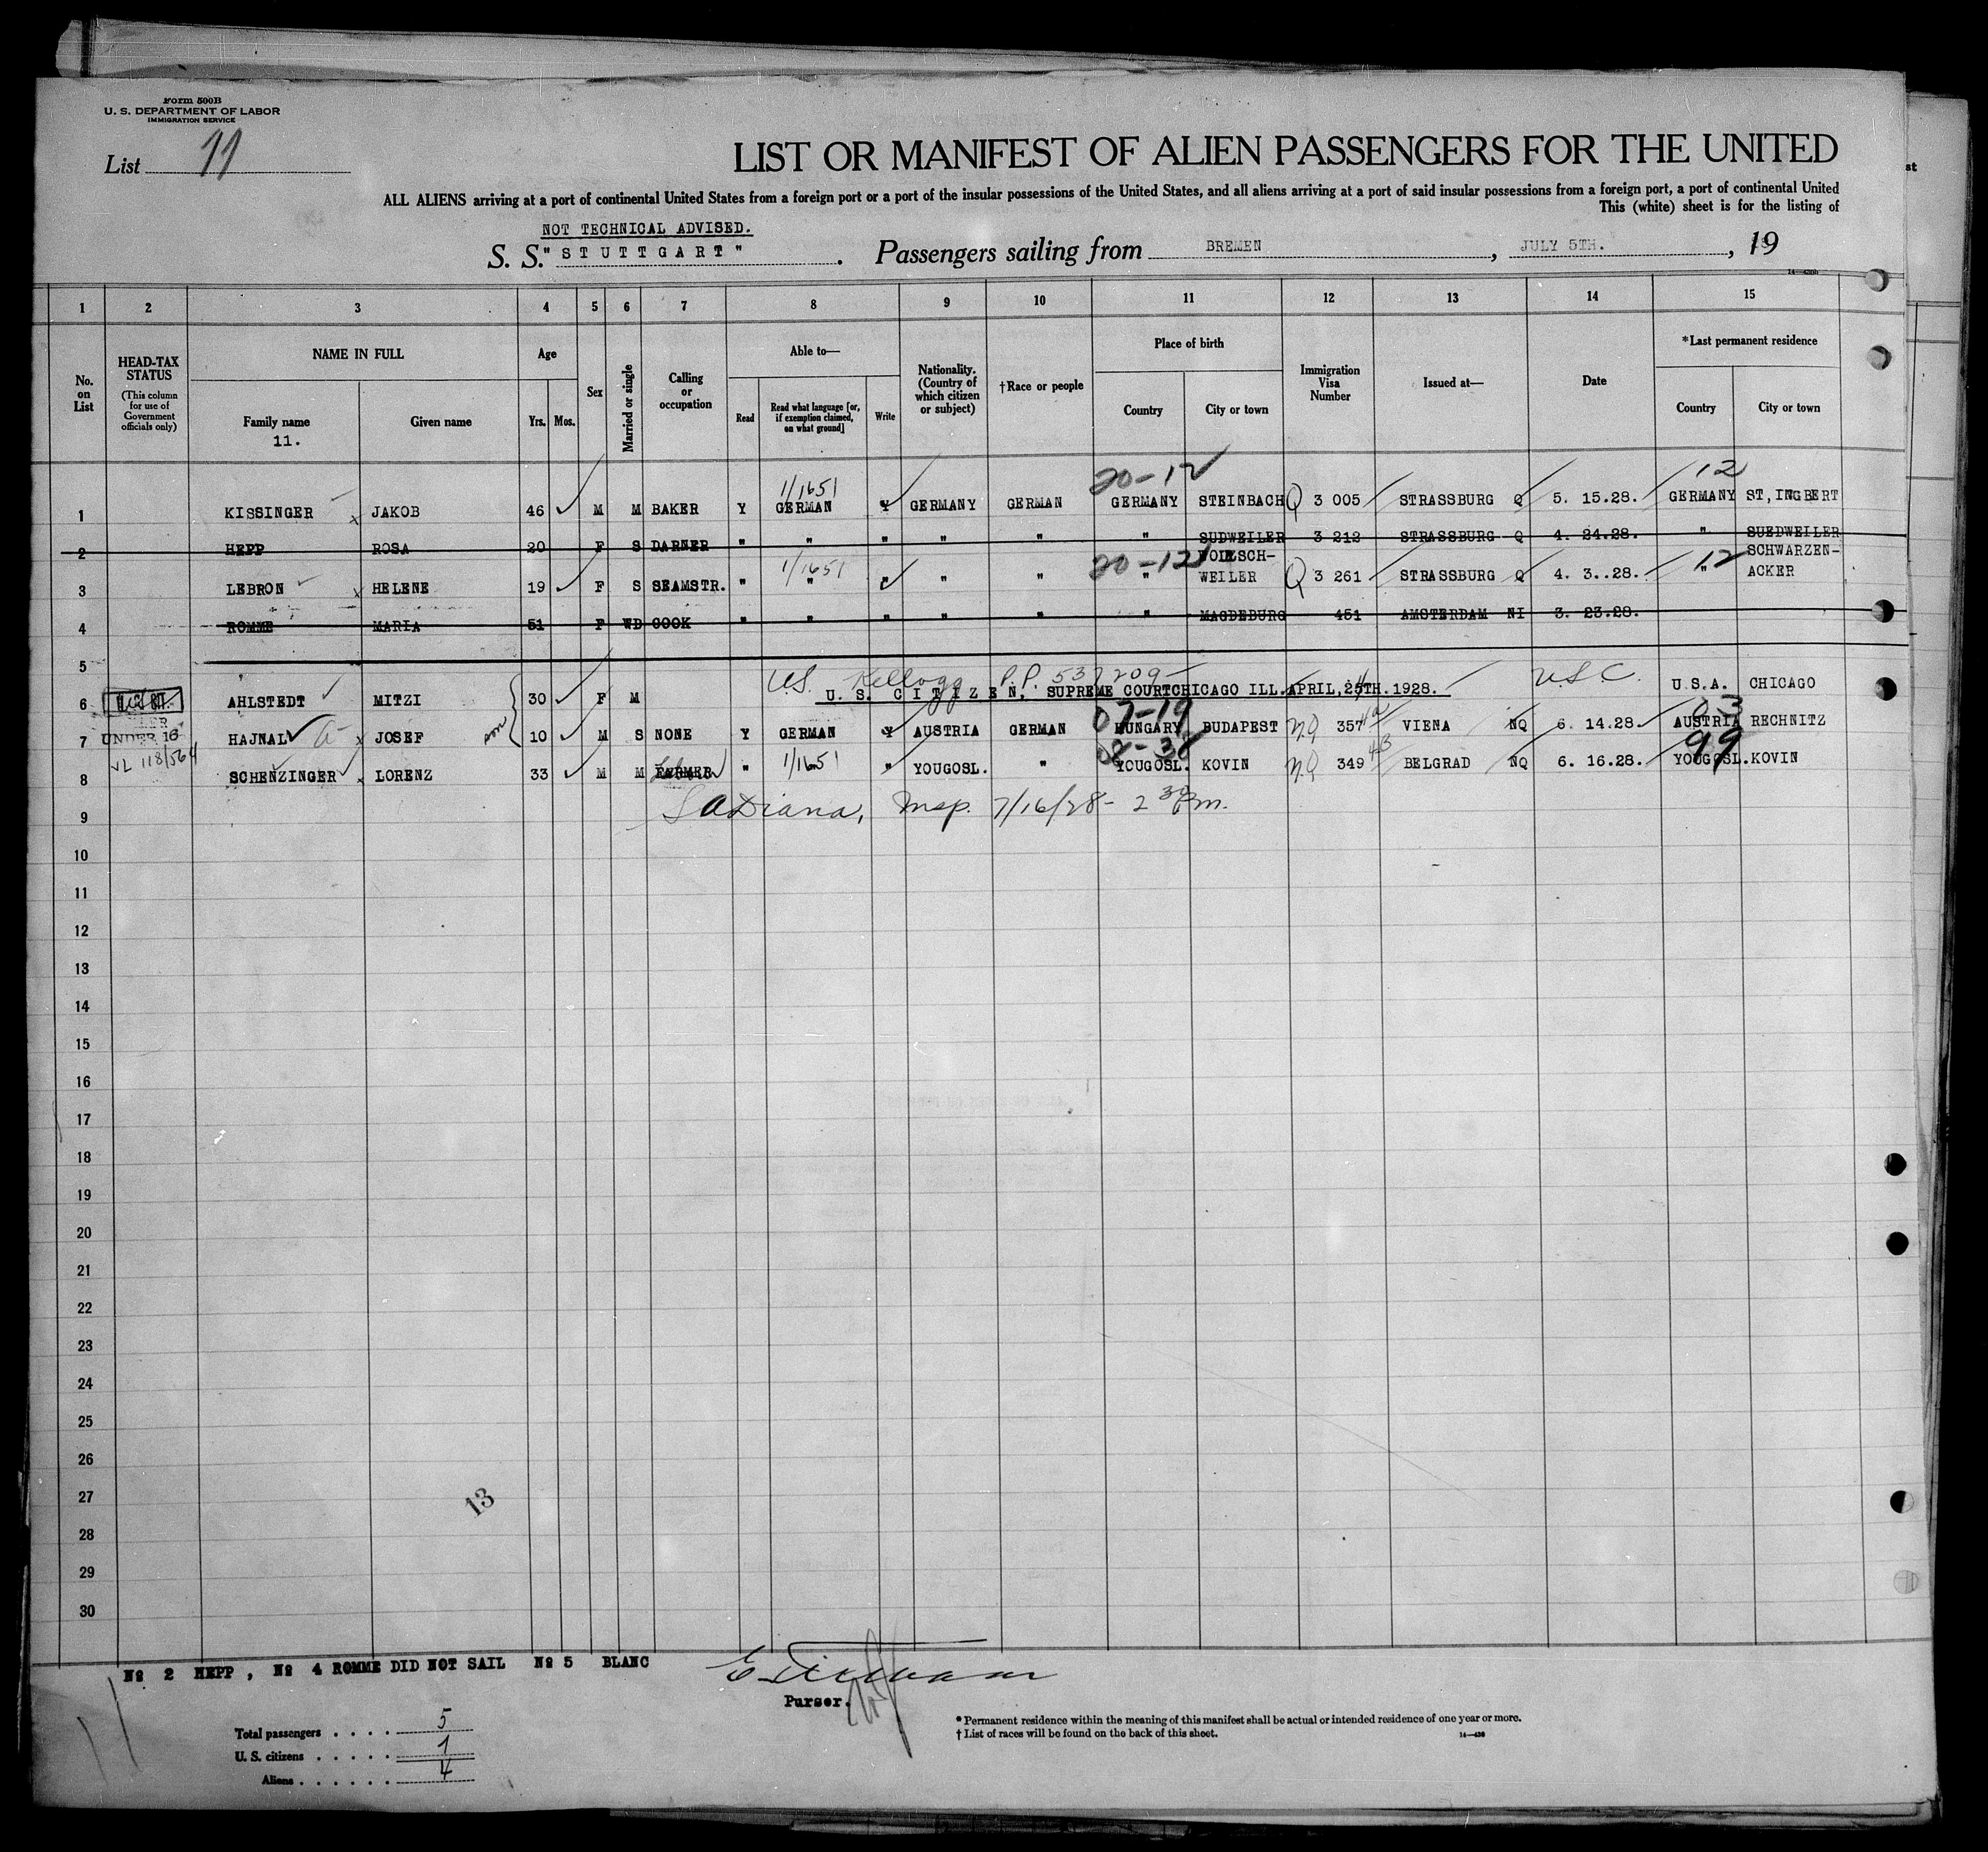 Form 500B
U. S. DEPARTMENT OF LABOR
IMMIGRATION SERVICE
List 11
LIST OR MANIFEST OF ALIEN PASSENGERS FOR THE UNITED
ALL ALIENS arriving at a port of continental United States from a foreign port or a port of the insular possessions of the United States, and all aliens arriving at a port of said insular possessions from a foreign port, a port of continental United
This (white) sheet is for the listing of
NOT TECHNICAL ADVISED.
S. S. "STUTTGART". Passengers sailing from BREMEN, JULY 5TH., 19
14—430b
1 2 3 4 5 6 7 8 9 10 11 12 13 14 15
No. on List
HEAD-TAX STATUS
(This column for use of Government officials only)
NAME IN FULL
Family name
11.
Given name
Age
Yrs. Mos.
Sex
Married or single
Calling or occupation
Able to—
Read
Read what language [or, if exemption claimed, on what ground]
Write
Nationality. (Country of which citizen or subject)
†Race or people
Place of birth
Country
City or town
Immigration Visa Number
Issued at—
Date
*Last permanent residence
Country
City or town
1/1651 20-12 12
1 KISSINGER JAKOB 46 M M BAKER Y GERMAN Y GERMANY GERMAN GERMANY STEINBACH Q 3 005 STRASSBURG Q 5. 15.28. GERMANY ST,INGBERT
2 HEPP ROSA 20 F S DARNER " " " " " " SUDWEILER 3 212 STRASSBURG Q 4. 24.28. " SUEDWEILER
1/1651 20-12 12 SCHWARZEN-
3 LEBRON HELENE 19 F S SEAMSTR. " " " " " " WEILER Q 3 261 STRASSBURG Q 4. 3..28. " ACKER
4 ROMME MARIA 51 F WD COOK " " " " " " MAGDEBURG 451 AMSTERDAM NI 3. 23.28.
5
US. Kellogg P.P. 537209 USC.
6 AHLSTEDT MITZI 30 F M U. S. CITIZEN, SUPREME COURTCHICAGO ILL.APRIL,25TH.1928. U.S.A. CHICAGO
UNDER 16 son 07-19 03
7 HAJNAL JOSEF 10 M S NONE Y GERMAN Y AUSTRIA GERMAN HUNGARY BUDAPEST NQ 357 VIENA NQ 6. 14.28. AUSTRIA RECHNITZ
118/564 08-38 99
8 SCHENZINGER LORENZ 33 M M FARMER " 1/1651 " YOUGOSL. " YOUGOSL. KOVIN NQ 349 BELGRAD NQ 6. 16.28. YOUGOSL. KOVIN
LaDiana, Insp. 7/16/28 - 2 30 P.m.
9
10
11
12
13
14
15
16
17
18
19
20
21
22
23
24
25
26
27
28
29
30
13
№ 2 HEPP, № 4 ROMME DID NOT SAIL № 5 BLANC
Purser.
Total passengers . . . . 5
U. S. citizens . . . . . 1
Aliens . . . . . . 4
* Permanent residence within the meaning of this manifest shall be actual or intended residence of one year or more.
† List of races will be found on the back of this sheet.
14—430